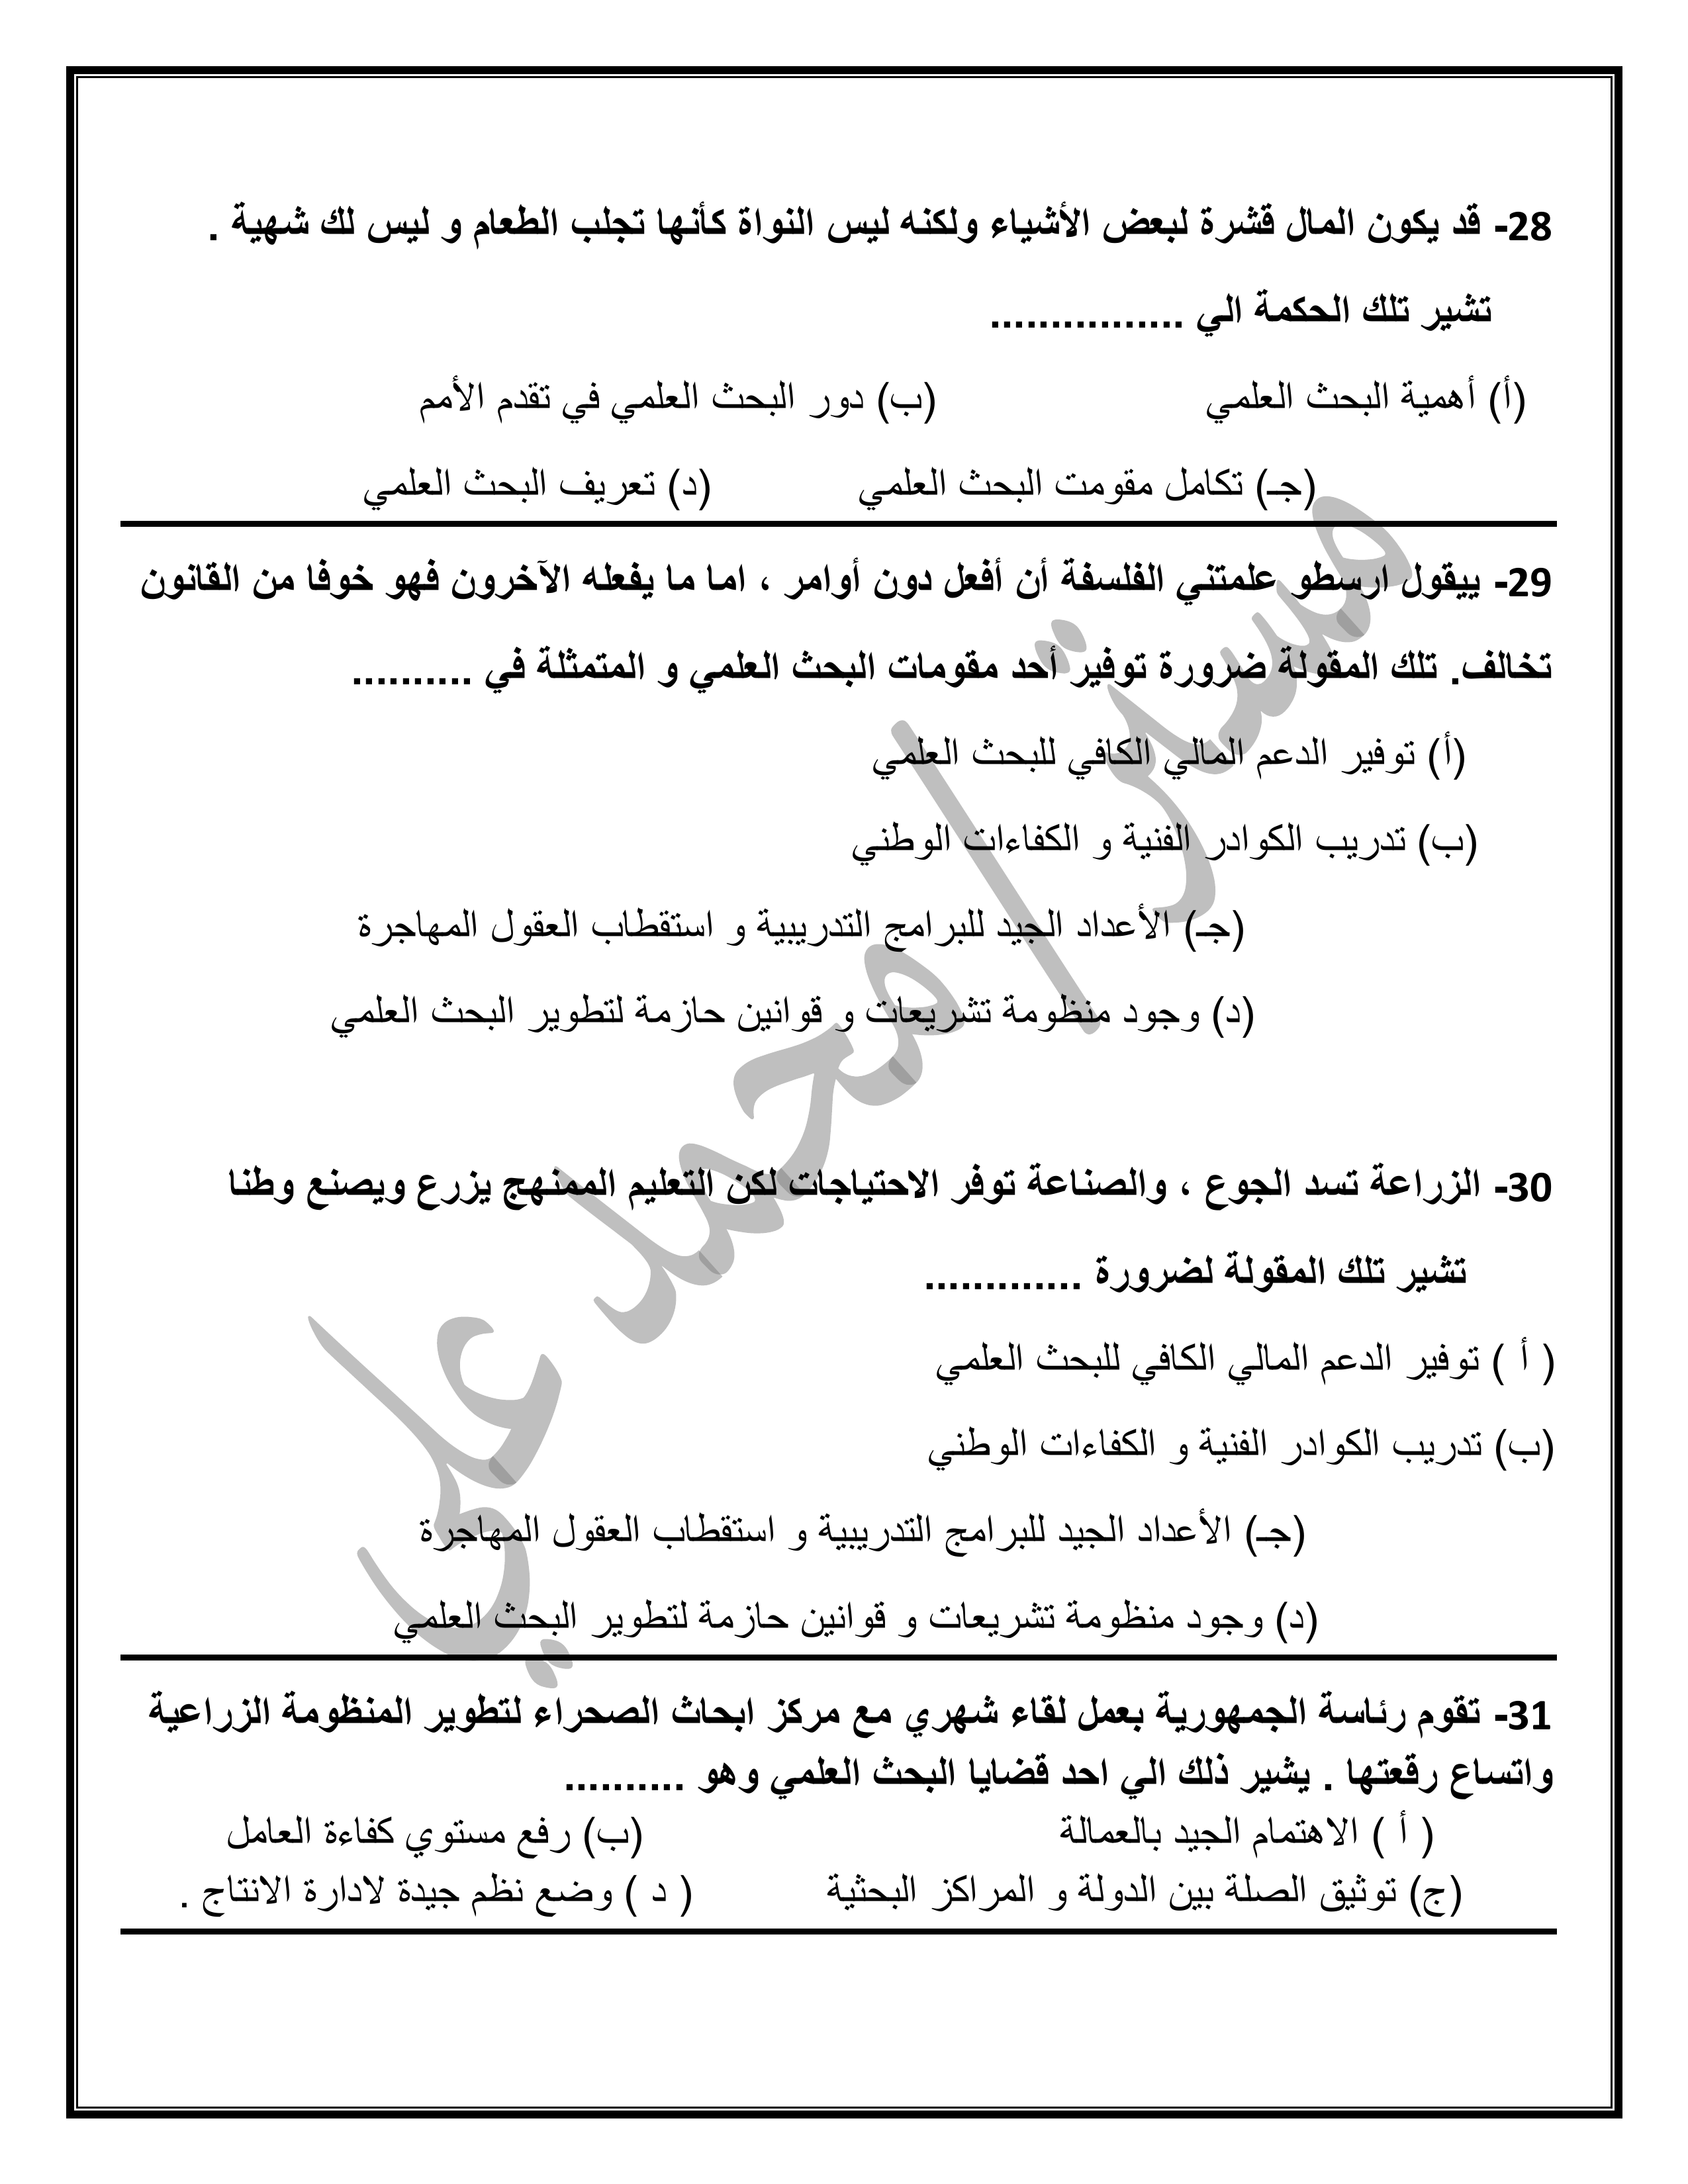 28- قد يكون المال قشرة لبعض الأشياء ولكنه ليس النواة كأنها تجلب الطعام و ليس لك شهية .
تشير تلك الحكمة الي ................
(أ) أهمية البحث العلمي (ب) دور البحث العلمي في تقدم الأمم
(جـ) تكامل مقومت البحث العلمي (د) تعريف البحث العلمي
29- ييقول ارسطو علمتني الفلسفة أن أفعل دون أوامر ، اما ما يفعله الآخرون فهو خوفا من القانون
تخالف. تلك المقولة ضرورة توفير أحد مقومات البحث العلمي و المتمثلة في ..........
(أ) توفير الدعم المالي الكافي للبحث العلمي
(ب) تدريب الكوادر الفنية و الكفاءات الوطني
(جـ) الأعداد الجيد للبرامج التدريبية و استقطاب العقول المهاجرة
(د) وجود منظومة تشريعات و قوانين حازمة لتطوير البحث العلمي
30- الزراعة تسد الجوع ، والصناعة توفر الاحتياجات لكن التعليم الممنهج يزرع ويصنع وطنا
تشير تلك المقولة لضرورة .............
( أ ) توفير الدعم المالي الكافي للبحث العلمي
(ب) تدريب الكوادر الفنية و الكفاءات الوطني
(جـ) الأعداد الجيد للبرامج التدريبية و استقطاب العقول المهاجرة
(د) وجود منظومة تشريعات و قوانين حازمة لتطوير البحث العلمي
31- تقوم رئاسة الجمهورية بعمل لقاء شهري مع مركز ابحاث الصحراء لتطوير المنظومة الزراعية
واتساع رقعتها . يشير ذلك الي احد قضايا البحث العلمي وهو ..........
( أ ) الاهتمام الجيد بالعمالة (ب) رفع مستوي كفاءة العامل
(ج) توثيق الصلة بين الدولة و المراكز البحثية ( د ) وضع نظم جيدة لادارة الانتاج .
مستر/محمد علي